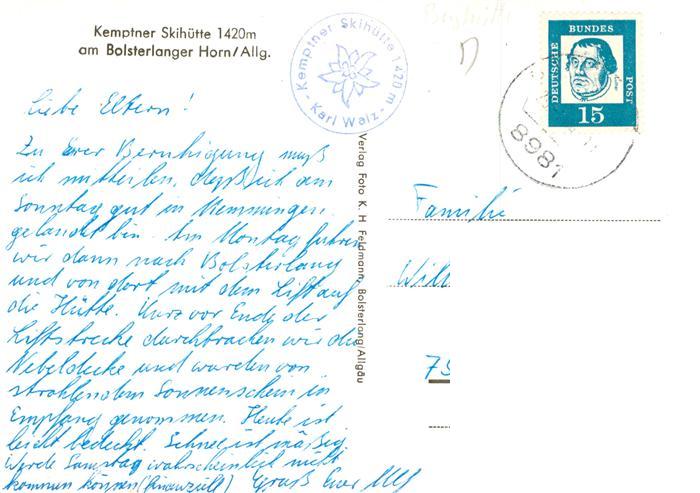 Kemptner Skihütte 1420m
am Bolsterlanger Horn/Allg.
Kemptner Skihütte 1420 m
- Karl Walz -
DEUTSCHE BUNDES POST
15
8981
Liebe Eltern!
Zu Eurer Beruhigung muß
ich mitteilen, daß ich am
Sonntag gut in Memmingen
gelandet bin. Am Montag fuhren
wir dann nach Bolsterlang
und von dort mit dem Lift auf
die Hütte. Kurz vor Ende der
Liftstrecke durchbrachen wir die
Nebeldecke und wurden von
strahlendem Sonnenschein in
Empfang genommen. Heute ist
leicht bedeckt. Schnee ist mäßig
Werde Samstag wahrscheinlich nicht
kommen können (finanziell) Gruß Euer
Verlag Foto K. H. Feldmann, Bolsterlang/Allgäu
Familie
Will
75